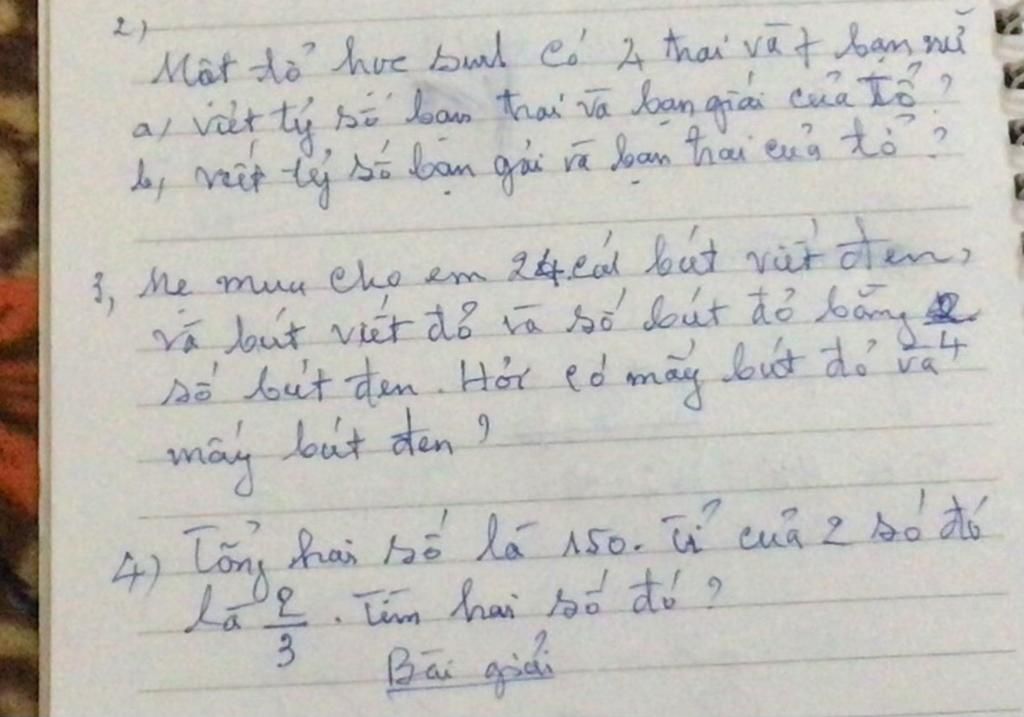 2)
Một tổ học sinh có 4 trai và 7 bạn nữ
a, viết tỷ số bạn trai và bạn gái của tổ?
b, viết tỷ số bạn gái và bạn trai của tổ?
3, Mẹ mua cho em 24 cái bút viết đen,
và bút viết đỏ và số bút đỏ bằng 2/4
số bút đen. Hỏi có mấy bút đỏ và
mấy bút đen?
4) Tổng hai số là 150. Tỉ của 2 số đó
là 2/3. Tìm hai số đó?
Bài giải